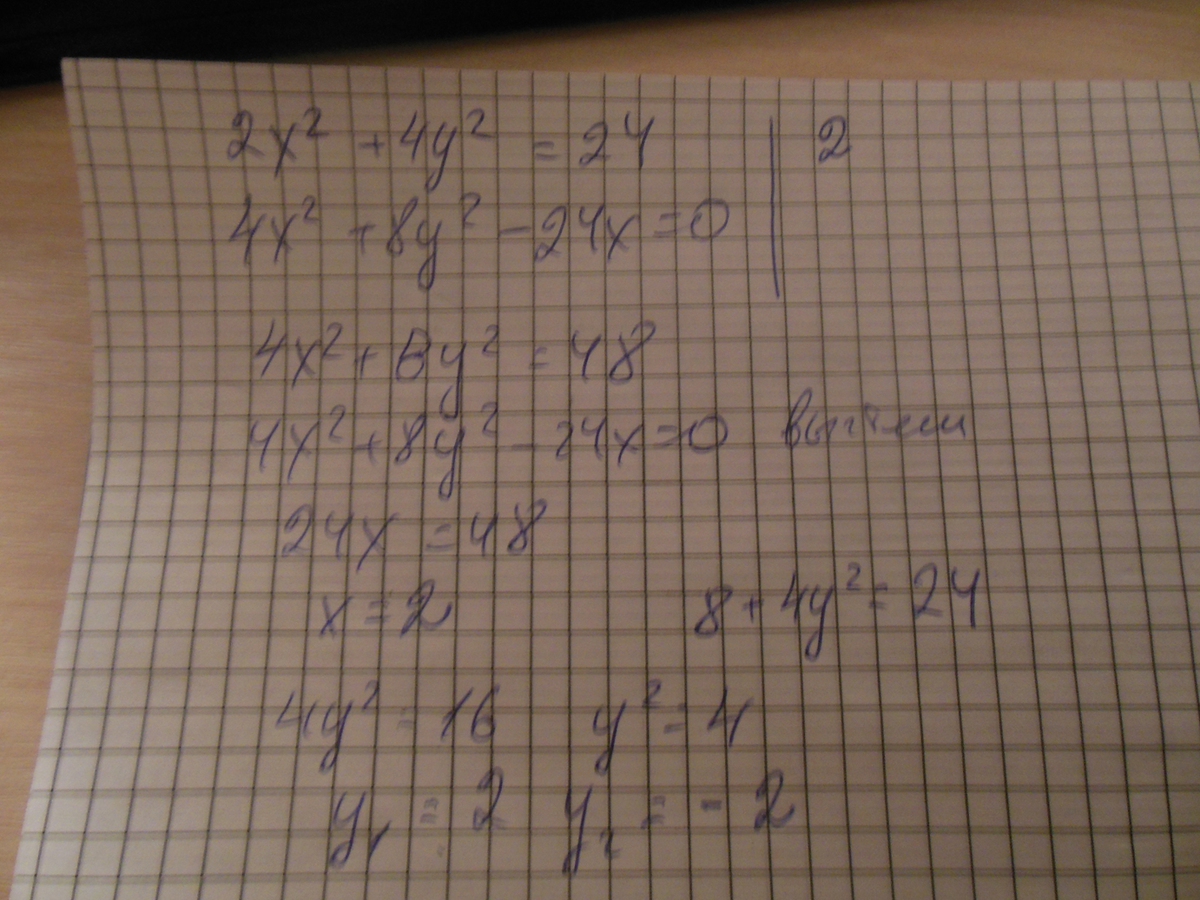 2x² + 4y² = 24 | 2
4x² + 8y² - 24x = 0
4x² + 8y² = 48
4x² + 8y² - 24x = 0 вычтем
24x = 48
x = 2 8 + 4y² = 24
4y² = 16 y² = 4
y₁ = 2 y₂ = - 2